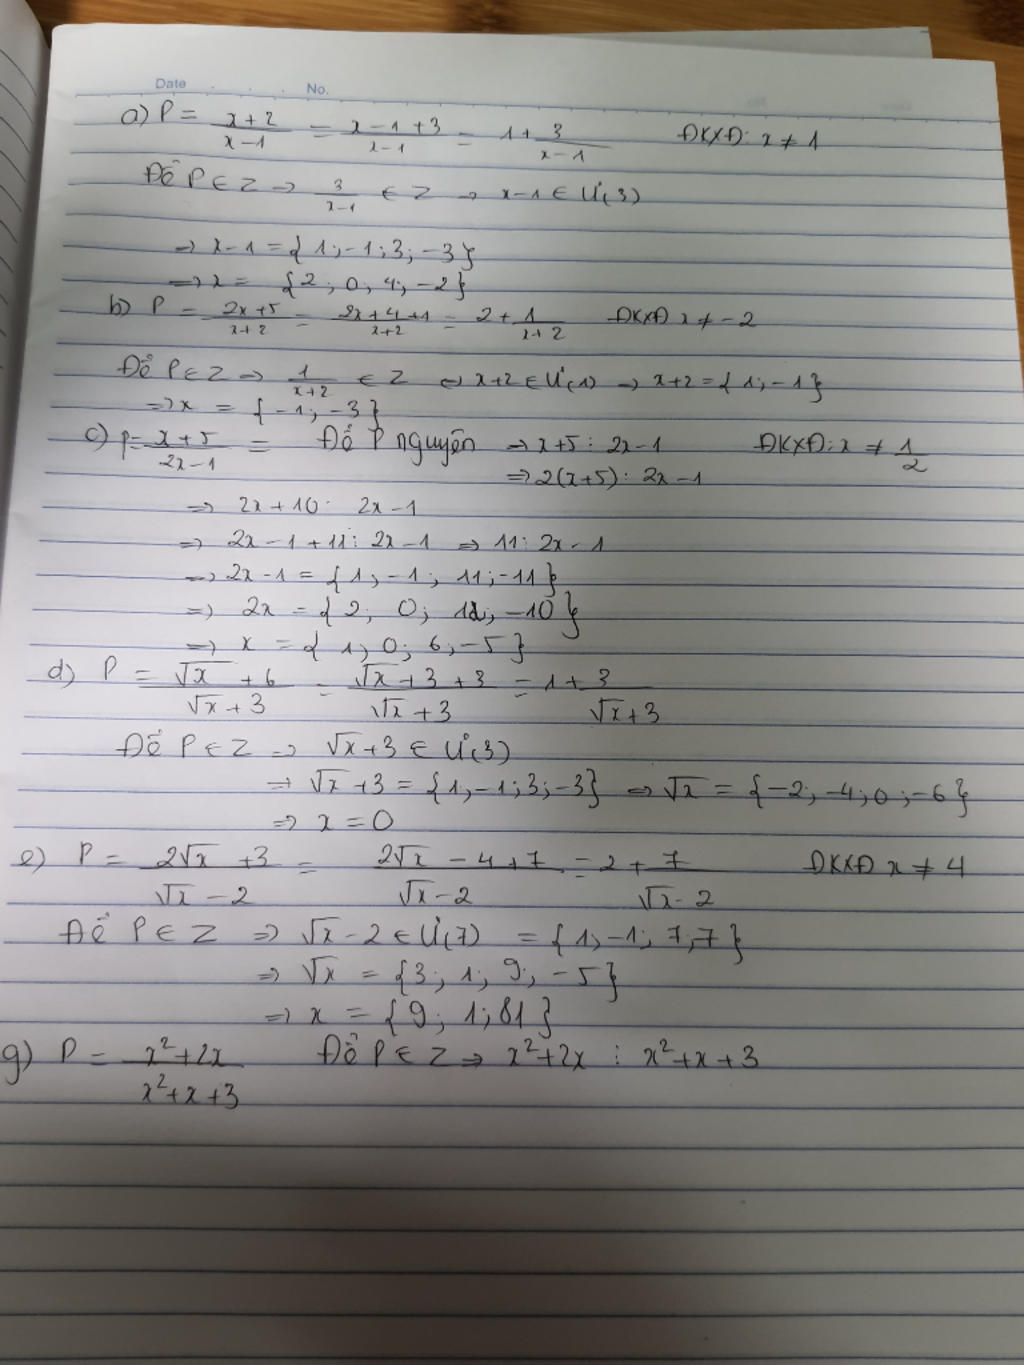 Date . . . No.
a) P = x+2/x-1 = x-1+3/x-1 = 1+3/x-1 ĐKXĐ: x ≠ 1
Để P ∈ Z → 3/x-1 ∈ Z → x-1 ∈ Ư(3)
⇒ x-1 = {1;-1;3;-3}
⇒ x = {2; 0; 4; -2}
b) P = 2x+5/x+2 = 2x+4+1/x+2 = 2+1/x+2 ĐKXĐ x ≠ -2
Để P ∈ Z ⇒ 1/x+2 ∈ Z ⇔ x+2 ∈ Ư(1) → x+2 = {1; -1}
⇒ x = {-1; -3}
c) P = x+5/2x-1 = Để P nguyên ⇒ x+5 ⋮ 2x-1 ĐKXĐ: x ≠ 1/2
⇒ 2(x+5) ⋮ 2x-1
⇒ 2x+10 ⋮ 2x-1
⇒ 2x-1+11 ⋮ 2x-1 ⇒ 11 ⋮ 2x-1
⇒ 2x-1 = {1; -1; 11; -11}
⇒ 2x = {2; 0; 12; -10}
⇒ x = {1; 0; 6; -5}
d) P = √x+6/√x+3 = √x+3+3/√x+3 = 1+3/√x+3
Để P ∈ Z ⇒ √x+3 ∈ Ư(3)
⇒ √x+3 = {1;-1;3;-3} ⇒ √x = {-2; -4; 0; -6}
⇒ x = 0
e) P = 2√x+3/√x-2 = 2√x-4+7/√x-2 = 2+7/√x-2 ĐKXĐ x ≠ 4
Để P ∈ Z ⇒ √x-2 ∈ Ư(7) = {1; -1; 7; 7}
⇒ √x = {3; 1; 9; -5}
⇒ x = {9; 1; 81}
g) P = x²+2x/x²+x+3 Để P ∈ Z ⇒ x²+2x ⋮ x²+x+3